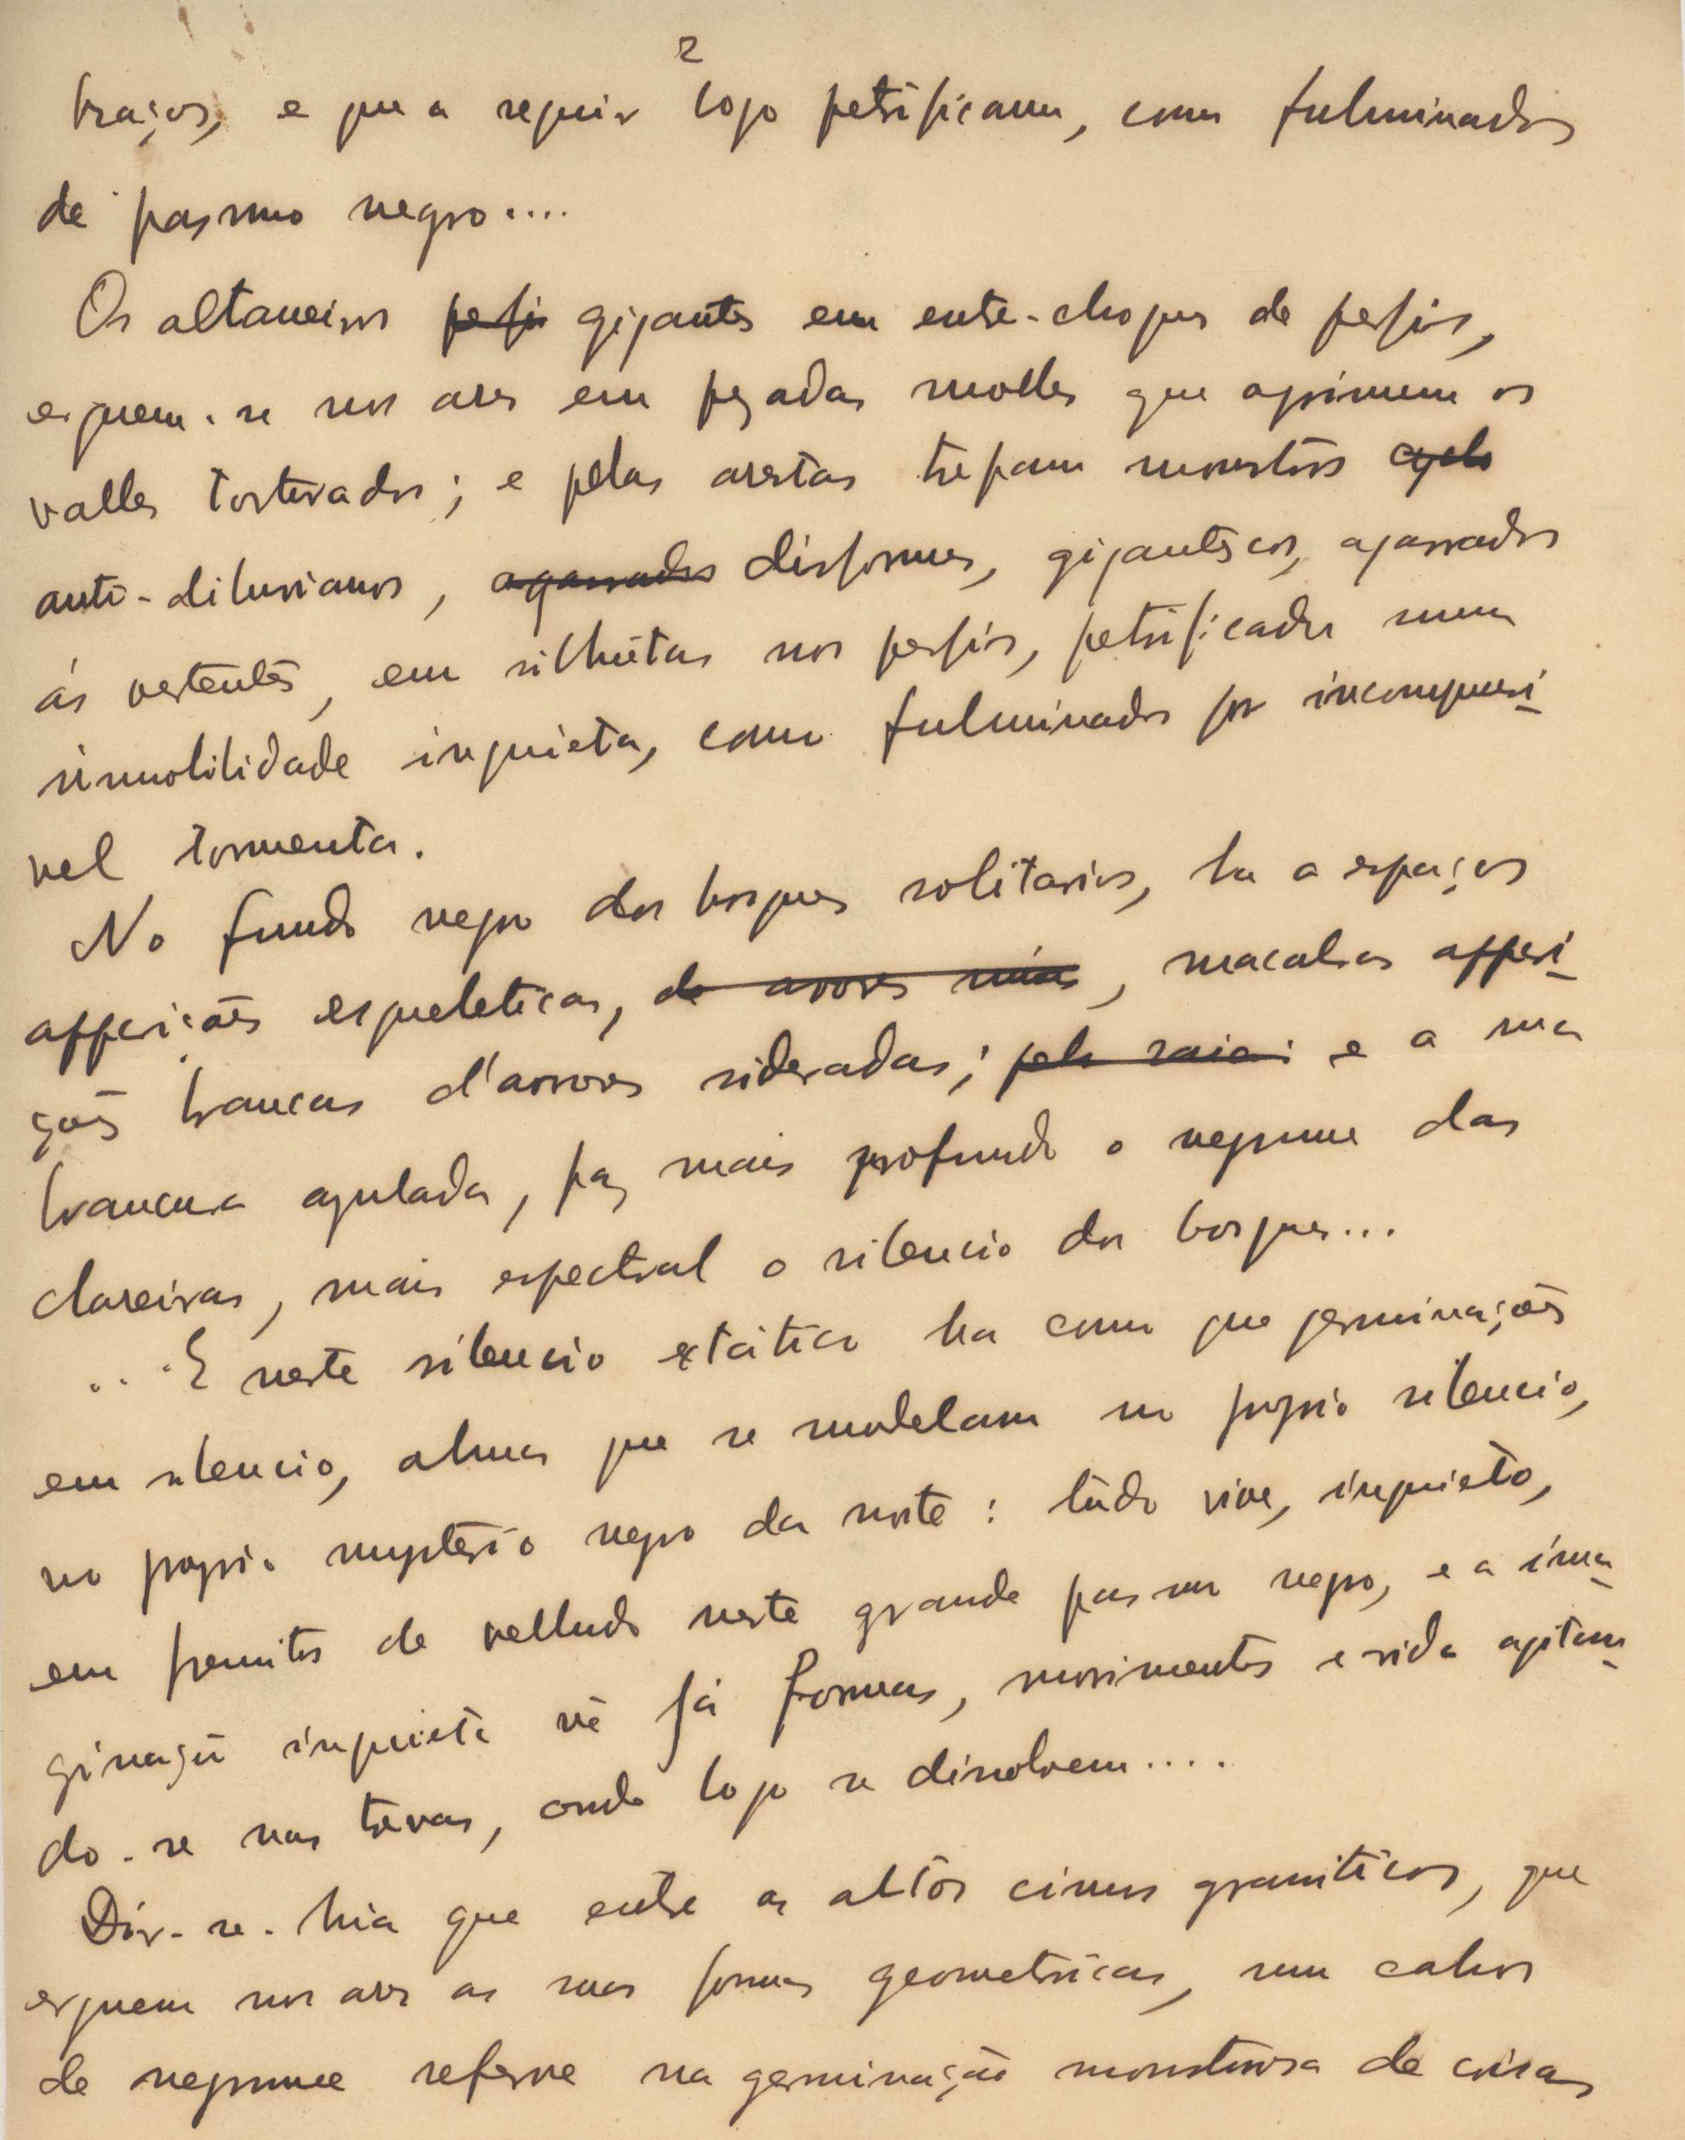 2
braços, e que a seguir logo petrificam, como fulminados
de pasmo negro....
Os altaneiros perfis gigantes em entre-choques de perfis,
erguem-se nos ares em pezadas molles que oprimem os
valles torturados; e pelas arestas trepam monstros cyclo
anti-diluvianos, agarrados disformes, gigantescos, agarrados
ás vertentes, em silhuêtas nos perfis, petrificados numa
immobilidade inquieta, como fulminados por incompreensi-
vel tormenta.
No fundo negro dos bosques solitarios, ha a espaços
apparições esqueleticas, de arvores núas, macabras appari-
ções brancas d'arvores sideradas; pelo raio; e a sua
brancura azulada, faz mais profundo o negrume das
clareiras, mais espectral o silencio dos bosques...
...E neste silencio extático ha como que germinações
em silencio, almas que se modelam no proprio silencio,
no proprio mysterio negro da noite: tudo vive, inquieto,
em fremitos de velludo neste grande pasmo negro, e a ima-
ginação inquieta vê já formas, movimentos e vida agitan-
do-se nas trevas, onde logo se dissolvem....
Dir-se-hia que entre os altos cimos graniticos, que
erguem nos ares as suas formas geometricas, um cahos
de negrume referve na germinação monstruosa de coisas